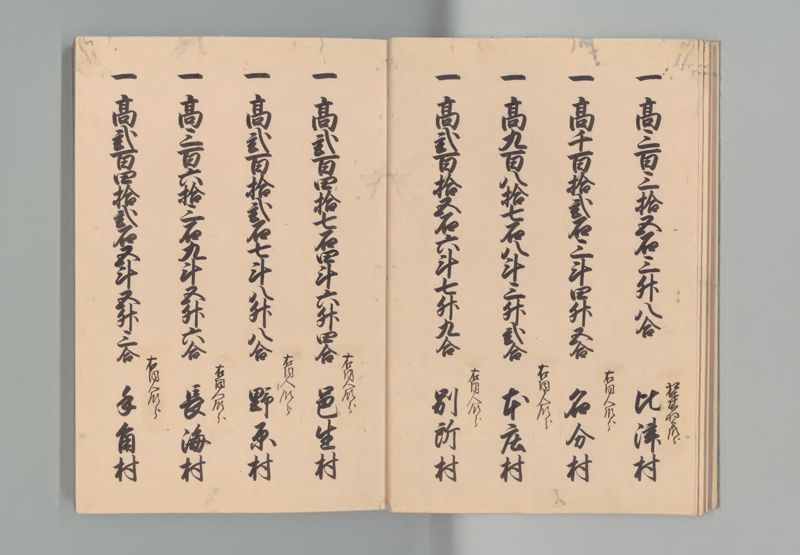 一 高三百三拾五石三升八合 比津村
一 高千百拾弐石三斗四升五合 名分村
右同人領分
一 高九百八拾七石八斗三升弐合 本庄村
右同人領分
一 高弐百拾五石六斗七升九合 別所村
右同人領分
一 高弐百四拾七石四斗六升四合 邑生村
右同人領分
一 高弐百拾弐石七斗八升八合 野原村
右同人領分
一 高三百六拾三石九斗五升六合 長海村
右同人領分
一 高弐百四拾弐石五斗五升三合 手角村
右同人領分